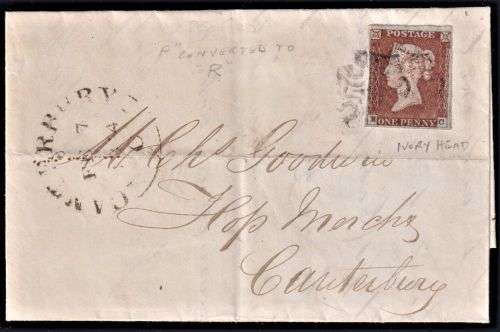 P" CONVERTED TO
"R"
POSTAGE
ONE PENNY
IVORY HEAD
CANTERBURY
Goodwin
Hop Merchts
Canterbury